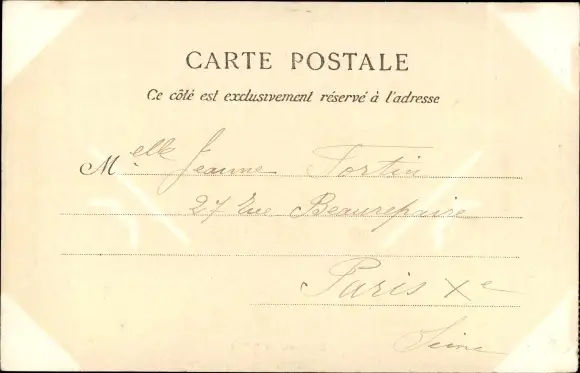 CARTE POSTALE
Ce côté est exclusivement réservé à l'adresse
Melle Jeanne Fortin
27 Rue Beaurepaire
Paris Xe
Seine